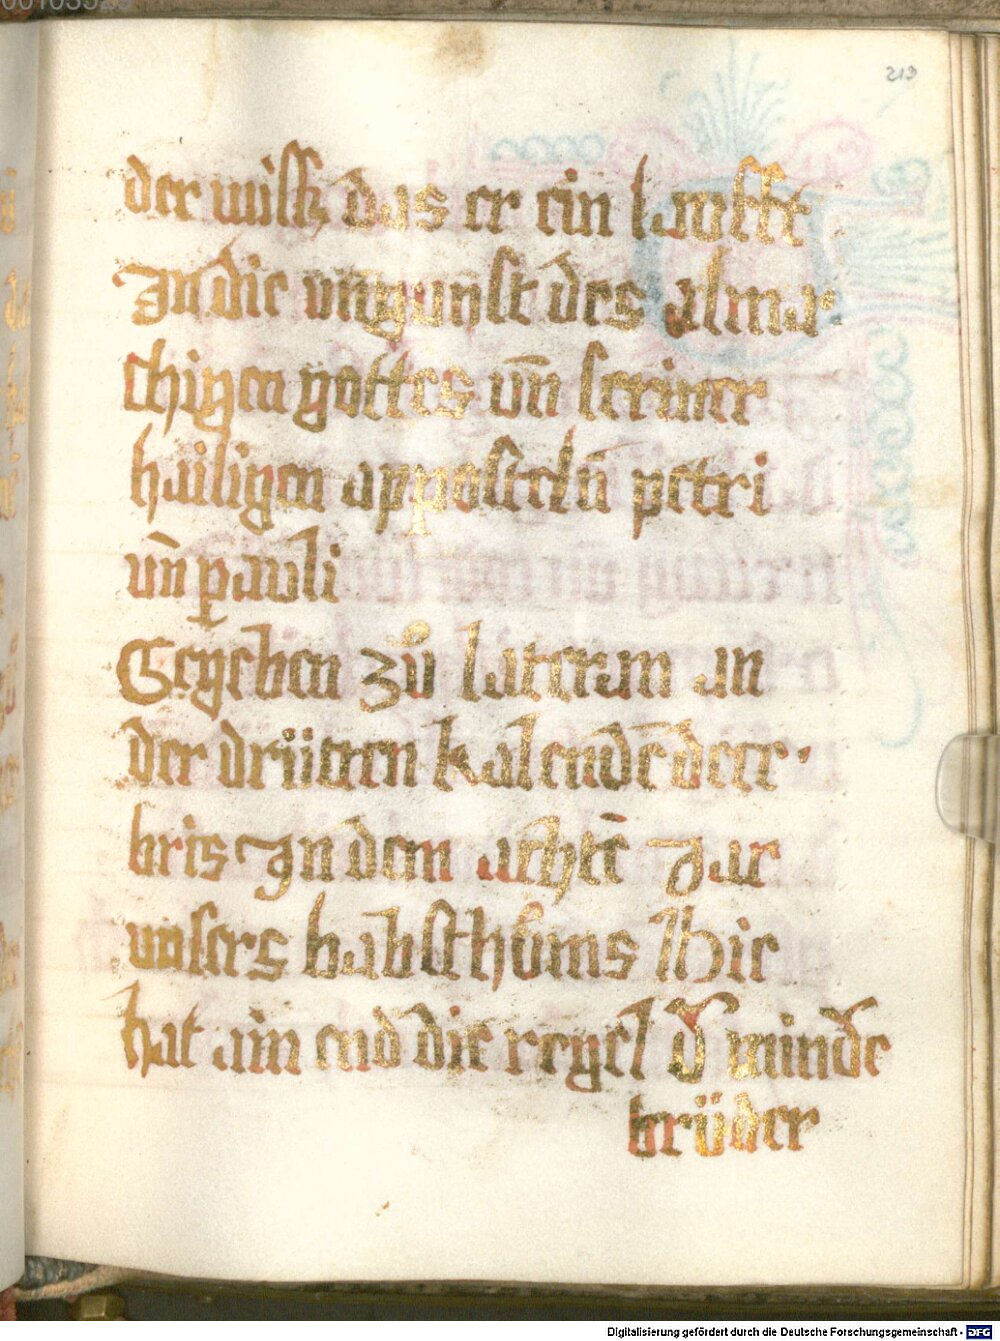 213
der wiss das er ein laufft
In die ungunst des alma
chigen gottes vn̄ seiner
hailigen apposteln̄ petri
vn̄ pauli
Gegeben zů lateran an
der dritten kalendē decē
bris In dem achtē Jar
vnsers babsthůms Hie
hat ain end die regel d̄ mindē
brüder
Digitalisierung gefördert durch die Deutsche Forschungsgemeinschaft - DFG